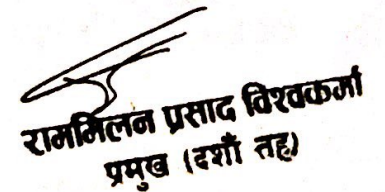 राममिलन प्रसाद विश्वकर्मा
प्रमुख (दशौँ तह)